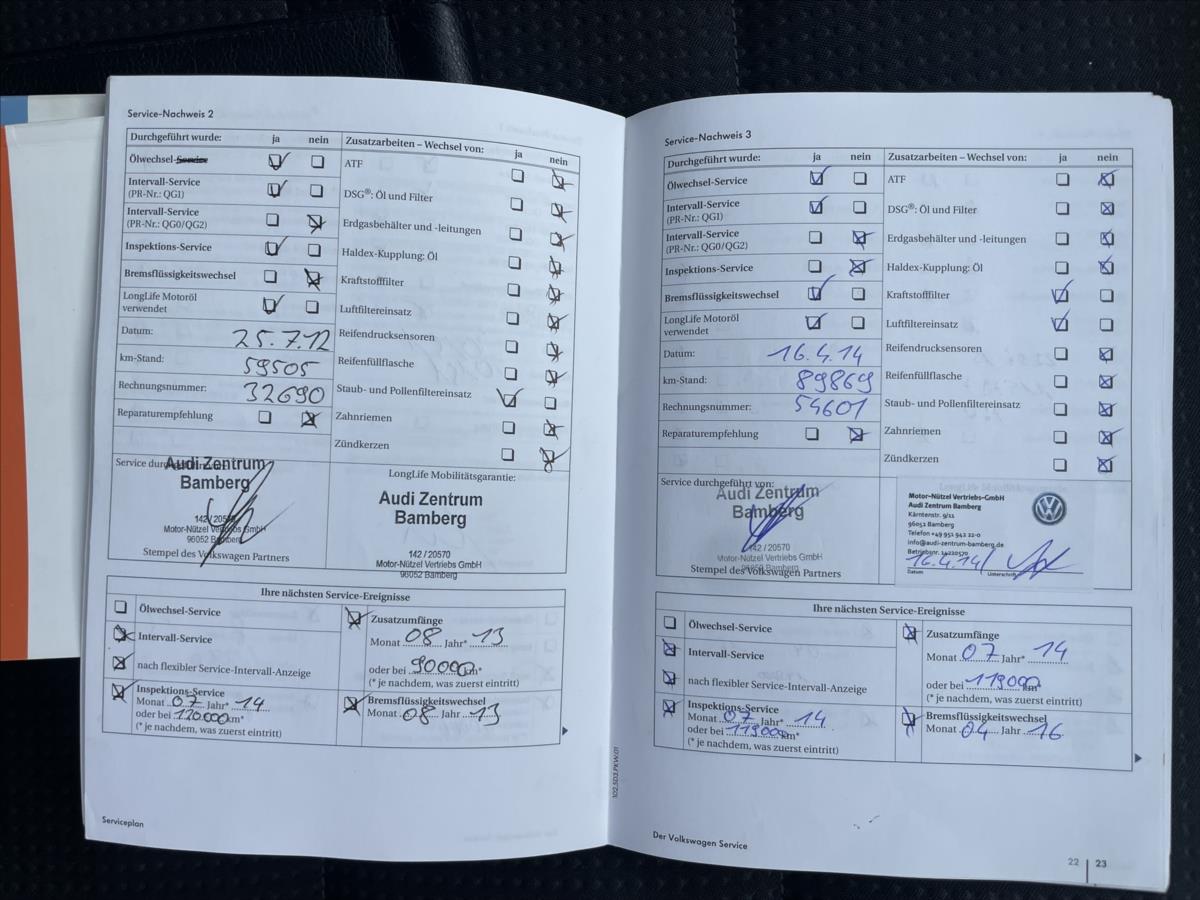 Service-Nachweis 2
Durchgeführt wurde: ja nein
Zusatzarbeiten – Wechsel von: ja nein
Ölwechsel-Service
Intervall-Service
(PR-Nr.: QG1)
Intervall-Service
(PR-Nr.: QG0/QG2)
Inspektions-Service
Bremsflüssigkeitswechsel
LongLife Motoröl
verwendet
Datum: 25.7.12
km-Stand: 59505
Rechnungsnummer: 32690
Reparaturempfehlung
ATF
DSG®: Öl und Filter
Erdgasbehälter und -leitungen
Haldex-Kupplung: Öl
Kraftstofffilter
Luftfiltereinsatz
Reifendrucksensoren
Reifenfüllflasche
Staub- und Pollenfiltereinsatz
Zahnriemen
Zündkerzen
Service durchgeführt von:
Audi Zentrum
Bamberg
142 / 20570
Motor-Nützel Vertriebs GmbH
96052 Bamberg
Stempel des Volkswagen Partners
LongLife Mobilitätsgarantie:
Audi Zentrum
Bamberg
142 / 20570
Motor-Nützel Vertriebs GmbH
96052 Bamberg
Ihre nächsten Service-Ereignisse
Ölwechsel-Service
Intervall-Service
nach flexibler Service-Intervall-Anzeige
Inspektions-Service
Monat 07 Jahr* 14
oder bei 120.000 km*
(* je nachdem, was zuerst eintritt)
Zusatzumfänge
Monat 08 Jahr* 13
oder bei 90000 km*
(* je nachdem, was zuerst eintritt)
Bremsflüssigkeitswechsel
Monat 08 Jahr 13
Serviceplan
Service-Nachweis 3
Durchgeführt wurde: ja nein
Zusatzarbeiten – Wechsel von: ja nein
Ölwechsel-Service
Intervall-Service
(PR-Nr.: QG1)
Intervall-Service
(PR-Nr.: QG0/QG2)
Inspektions-Service
Bremsflüssigkeitswechsel
LongLife Motoröl
verwendet
Datum: 16.4.14
km-Stand: 89869
Rechnungsnummer: 54601
Reparaturempfehlung
ATF
DSG®: Öl und Filter
Erdgasbehälter und -leitungen
Haldex-Kupplung: Öl
Kraftstofffilter
Luftfiltereinsatz
Reifendrucksensoren
Reifenfüllflasche
Staub- und Pollenfiltereinsatz
Zahnriemen
Zündkerzen
Service durchgeführt von:
Audi Zentrum
Bamberg
142 / 20570
Motor-Nützel Vertriebs GmbH
96052 Bamberg
Stempel des Volkswagen Partners
Motor-Nützel Vertriebs-GmbH
Audi Zentrum Bamberg
Kärntenstr. 9/11
96052 Bamberg
Telefon +49 951 942 22-0
info@audi-zentrum-bamberg.de
Betriebsnr. 14220570
16.4.14
Datum Unterschrift
Ihre nächsten Service-Ereignisse
Ölwechsel-Service
Intervall-Service
nach flexibler Service-Intervall-Anzeige
Inspektions-Service
Monat 07 Jahr* 14
oder bei 119000 km*
(* je nachdem, was zuerst eintritt)
Zusatzumfänge
Monat 07 Jahr* 14
oder bei 119000 km*
(* je nachdem, was zuerst eintritt)
Bremsflüssigkeitswechsel
Monat 04 Jahr 16
102.5D3.PKW.01
Der Volkswagen Service
22 | 23